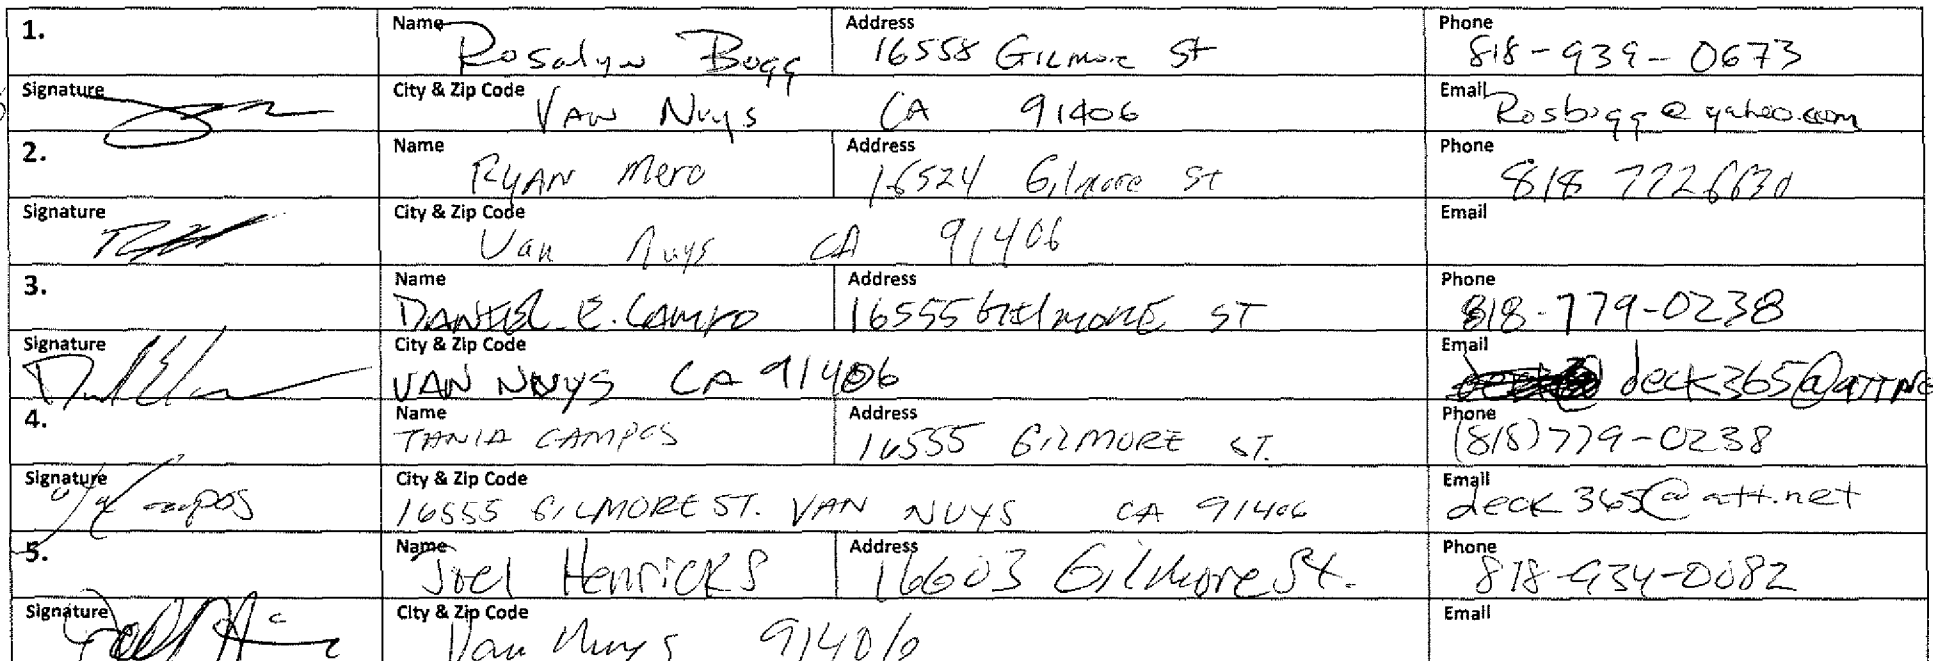 1. Name Rosalyn Bogg Address 16558 Gilmore St Phone 818-939-0673
Signature City & Zip Code Van Nuys CA 91406 Email Rosbogg@yahoo.com
2. Name Ryan Mero Address 16524 Gilmore St Phone 818
Signature City & Zip Code Van Nuys CA 91406 Email
3. Name DANIEL E. CAMPO Address 16555 GILMORE ST Phone 818-779-0238
Signature City & Zip Code VAN NUYS CA 91406 Email deck365@ATTNE
4. Name TANIA CAMPOS Address 16555 GILMORE ST. Phone (818)779-0238
Signature City & Zip Code 16555 GILMORE ST. VAN NUYS CA 91406 Email deck365@att.net
5. Name Joel Henricks Address 16603 Gilmore St. Phone 818-934-0082
Signature City & Zip Code Van Nuys 91406 Email